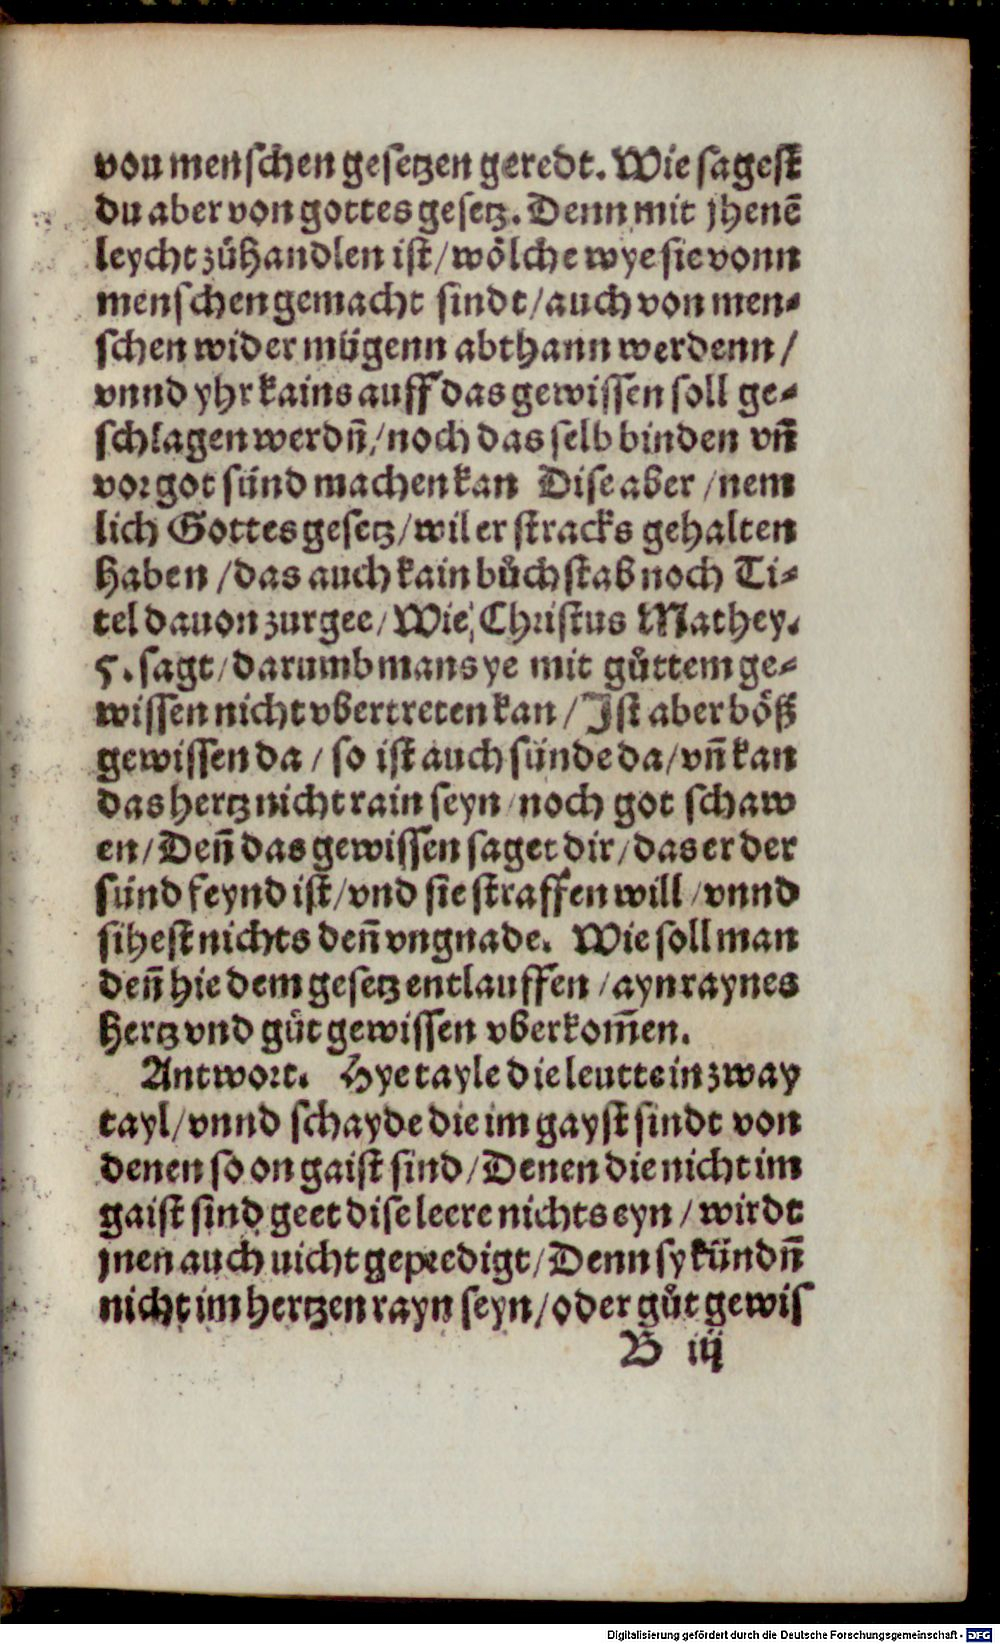 von menschen gesetzen geredt. Wie sagest
du aber von gottes gesetz. Denn mit jhenē
leycht zůhandlen ist/ wölche wye sie vonn
menschen gemacht sindt/ auch von men-
schen wider mügenn abthann werdenn/
vnnd yhr kains auff das gewissen soll ge-
schlagen werdn̄/ noch das selb binden vn̄
vor got sünd machen kan Dise aber/ nem
lich Gottes gesetz/ wil er stracks gehalten
haben/ das auch kain bůchstab noch Ti-
tel dauon zurgee/ Wie Christus Mathey.
5. sagt/ darumb mans ye mit gůttem ge-
wissen nicht vbertreten kan/ Ist aber böß
gewissen da/ so ist auch sünde da/ vn̄ kan
das hertz nicht rain seyn/ noch got schaw
en/ Den̄ das gewissen saget dir/ das er der
sünd feynd ist/ vnd sie straffen will/ vnnd
sihest nichts den̄ vngnade. Wie soll man
den̄ hie dem gesetz entlauffen/ ayn raynes
hertz vnd gůt gewissen vberkom̄en.
Antwort. Hye tayle die leutte in zway
tayl/ vnnd schayde die im gayst sindt von
denen so on gaist sind/ Denen die nicht im
gaist sind geet dise leere nichts eyn/ wirdt
jnen auch nicht gepredigt/ Denn sy kündn̄
nicht im hertzen rayn seyn/ oder gůt gewis
B iij
Digitalisierung gefördert durch die Deutsche Forschungsgemeinschaft - DFG